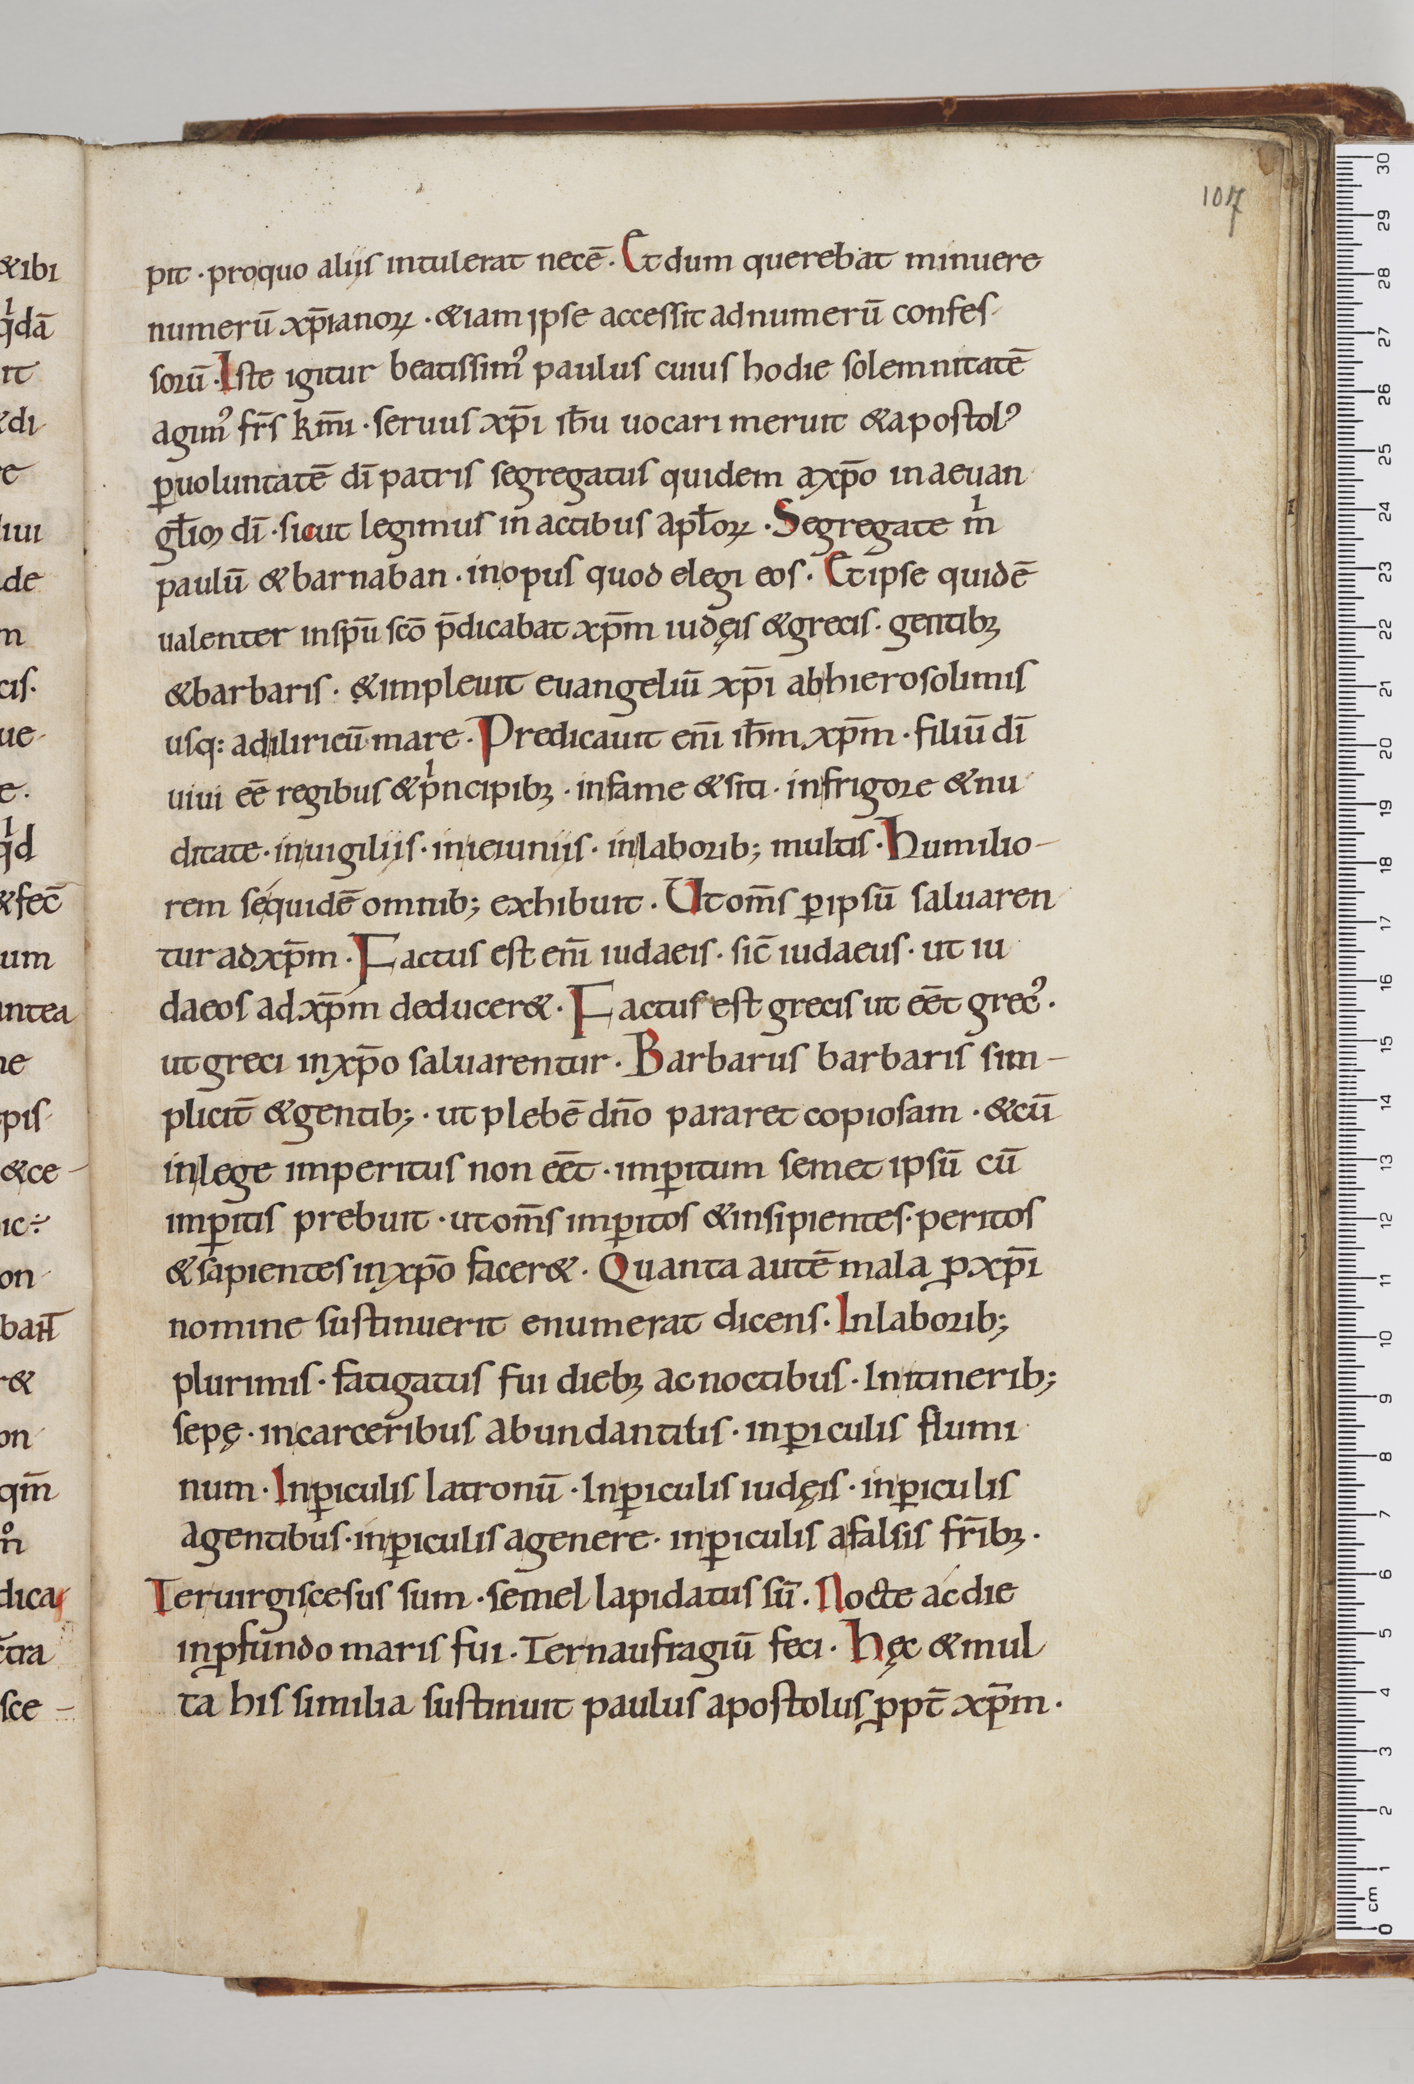 107
pit · proquo aliis intulerat necē · Et dum querebat minuere
numerū xp̄ianoꝝ · & iam ipse accessit ad numerū confes-
sorū · Iste igitur beatissim᾿ paulus cuius hodie solemnitatē
agim᾿ fr̄s km̄i · seruus xp̄i ih̄u uocari meruit & apostol᾿
ꝑ uoluntatē dī patris segregatus quidem a xp̄o in aeuan
gl̄io dī · sicut legimus in actibus apl̄oꝝ · Segregate m̍
paulū & barnaban · in opus quod elegi eos · Et ipse quidē
ualenter in sp̄u sc̄o p̄dicabat xp̄m iudęis & grecis · gentibꝫ
& barbaris · & impleuit euangeliū xp̄i ab hierosolimis
usq: ad iliricū mare · Predicauit em̄ ih̄m xp̄m · filiū dī
uiui eē regibus & p̍ncipibꝫ · in fame & siti · in frigore & nu
ditate · in uigiliis · in ieiuniis · in laborib; multis · Humilio-
rem se quidē omnib; exhibuit · Ut om̄s ꝑ ipsū saluaren
tur ad xp̄m · Factus est em̄ iudaeis · sic̄ iudaeus · ut iu
daeos ad xp̄m deducer& · Factus est grecis ut eēt grec᾿ ·
ut greci in xp̄o saluarentur · Barbarus barbaris sim-
plicit̄ & gentib; · ut plebē dn̄o pararet copiosam · & cū
in lege imperitus non eēt · imꝑitum semet ipsū cū
imꝑitis prebuit · ut om̄s imꝑitos & insipientes · peritos
& sapientes in xp̄o facer& · Quanta autē mala ꝓ xp̄i
nomine sustinuerit enumerat dicens · In laborib;
plurimis · fatigatus fui diebꝫ ac noctibus · In itinerib;
sepę · in carceribus abundantitis · in ꝑiculis flumi
num · In ꝑiculis latronū · In ꝑiculis iudęis · in ꝑiculis
a gentibus · in ꝑiculis a genere · in ꝑiculis a falsis fr̄ibꝫ ·
Ter uirgis cesus sum · semel lapidatus sū · Nocte ac die
in ꝓfundo maris fui · Ter naufragiū feci · Hęc & mul
ta his similia sustinuit paulus apostolus ꝓpt̄ xp̄m ·